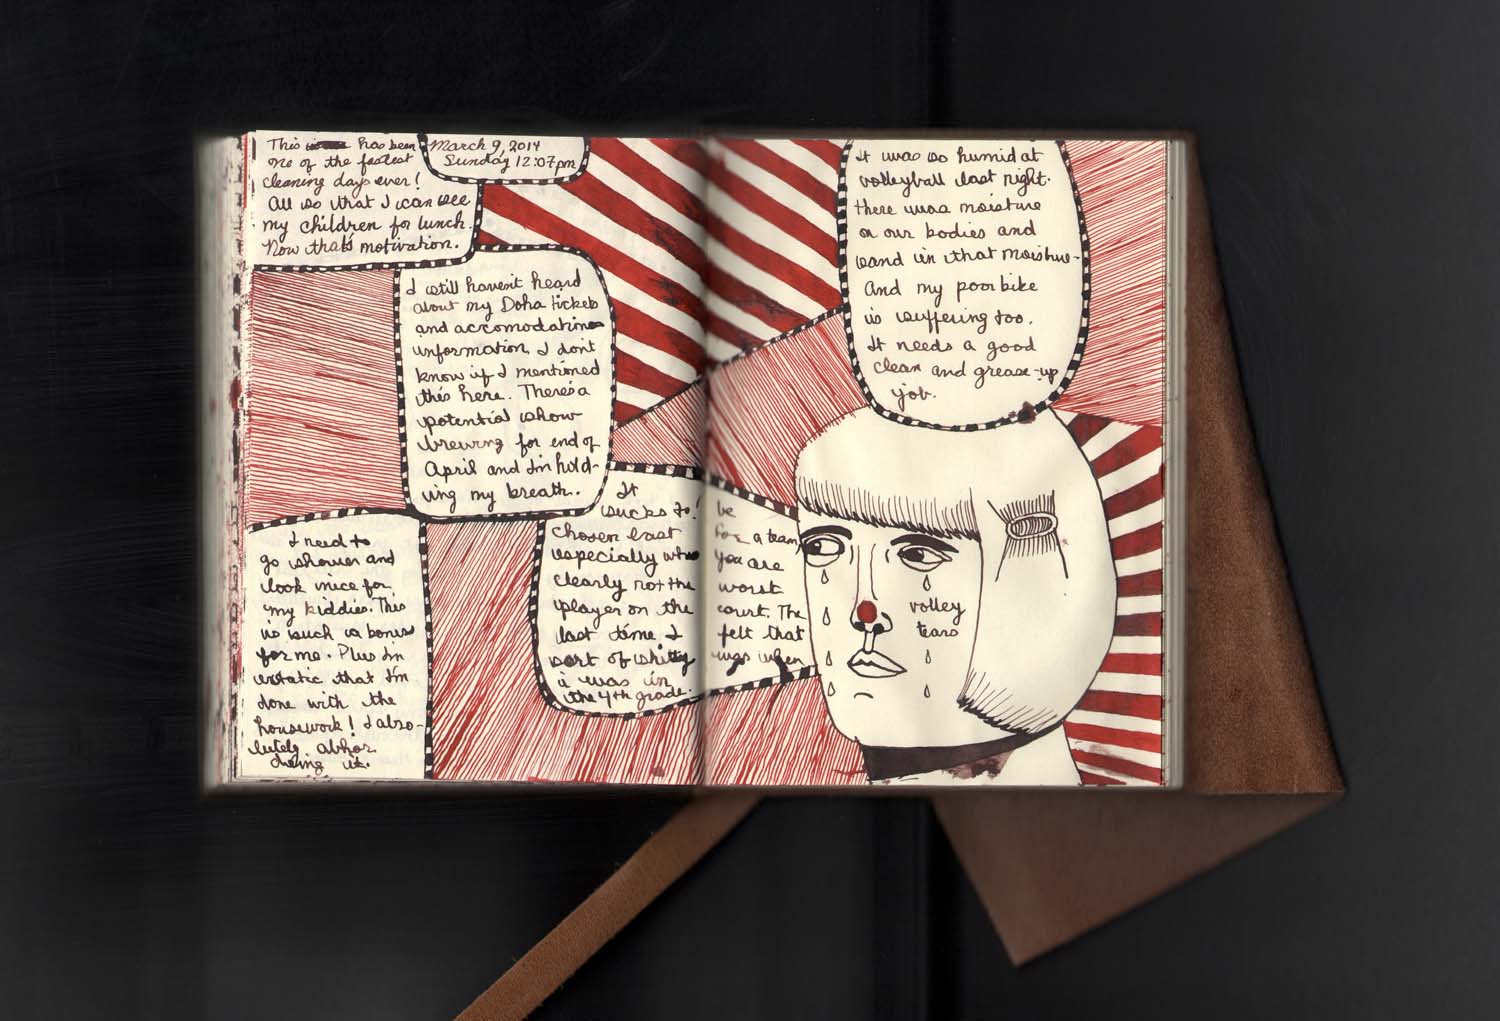 March 9, 2014
Sunday 12:07pm
This has been
one of the fastest
cleaning days ever!
All so that I can see
my children for lunch.
Now that's motivation.
I still haven't heard
about my Doha tickets
and accomodations
information. I don't
know if I mentioned
this here. There's a
potential show
brewing for end of
April and I'm hold-
ing my breath.
I need to
go shower and
look nice for
my kiddies. This
is such a bonus
for me. Plus I'm
ecstatic that I'm
done with the
housework! I abso-
lutely abhor
doing it.
It
sucks to! be
chosen last for a team
especially when you are
clearly not the worst
player on the court. The
last time I felt that
sort of shitty was when
i was in
the 4th grade.
It was so humid at
volleyball last night.
there was moisture
on our bodies and
sand in that moisture.
And my poor bike
is suffering too.
It needs a good
clean and grease-up
job.
volley
tears